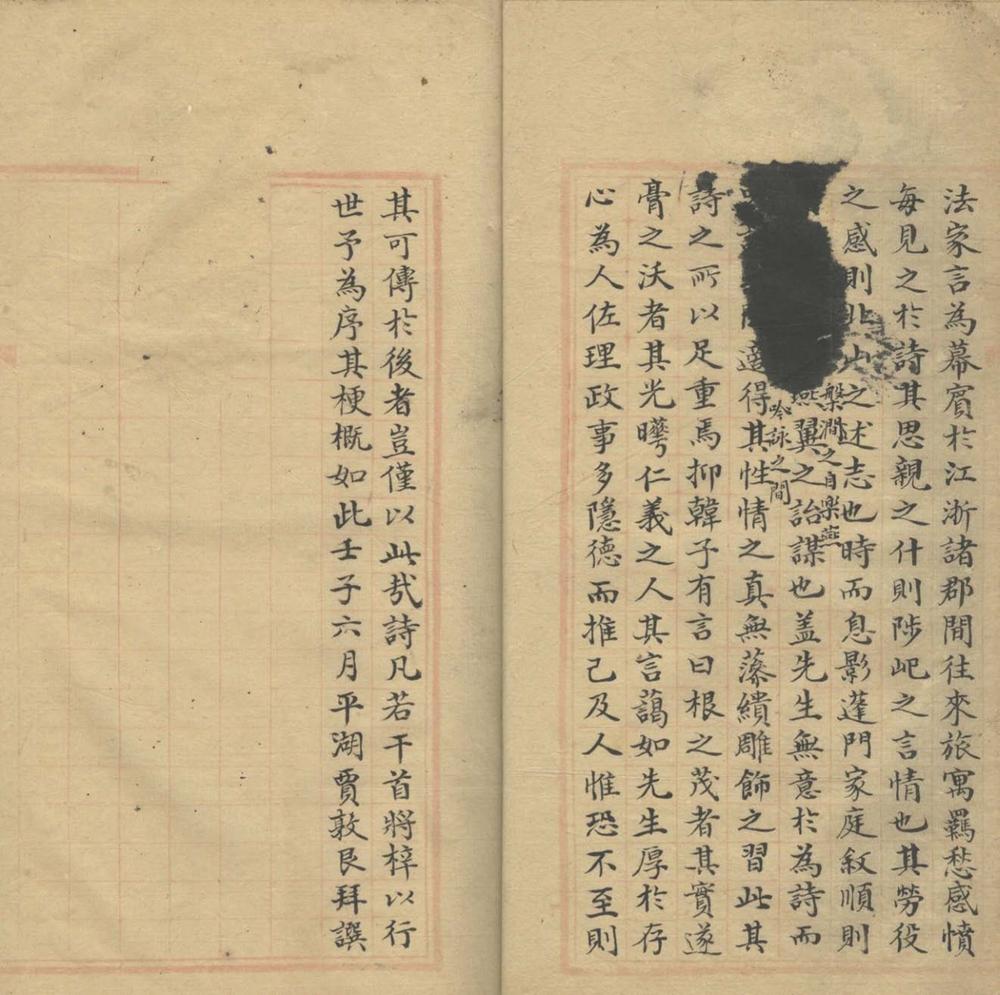 法家言為幕賓於江浙諸郡間往來旅寓羈愁感憤
每見之於詩其思親之什則陟屺之言情也其勞役
之感則北山之述志也時而息影蓬門家庭敘順則
槃澗之自樂燕
燕翼之詒謀也蓋先生無意於為詩而
吟詠之間
適得其性情之真無藻繢雕飾之習此其
詩之所以足重焉抑韓子有言曰根之茂者其實遂
膏之沃者其光曄仁義之人其言藹如先生厚於存
心為人佐理政事多隱德而推己及人惟恐不至則
其可傳於後者豈僅以此㢤詩凡若干首將梓以行
世予為序其梗概如此壬子六月平湖賈敦艮拜譔